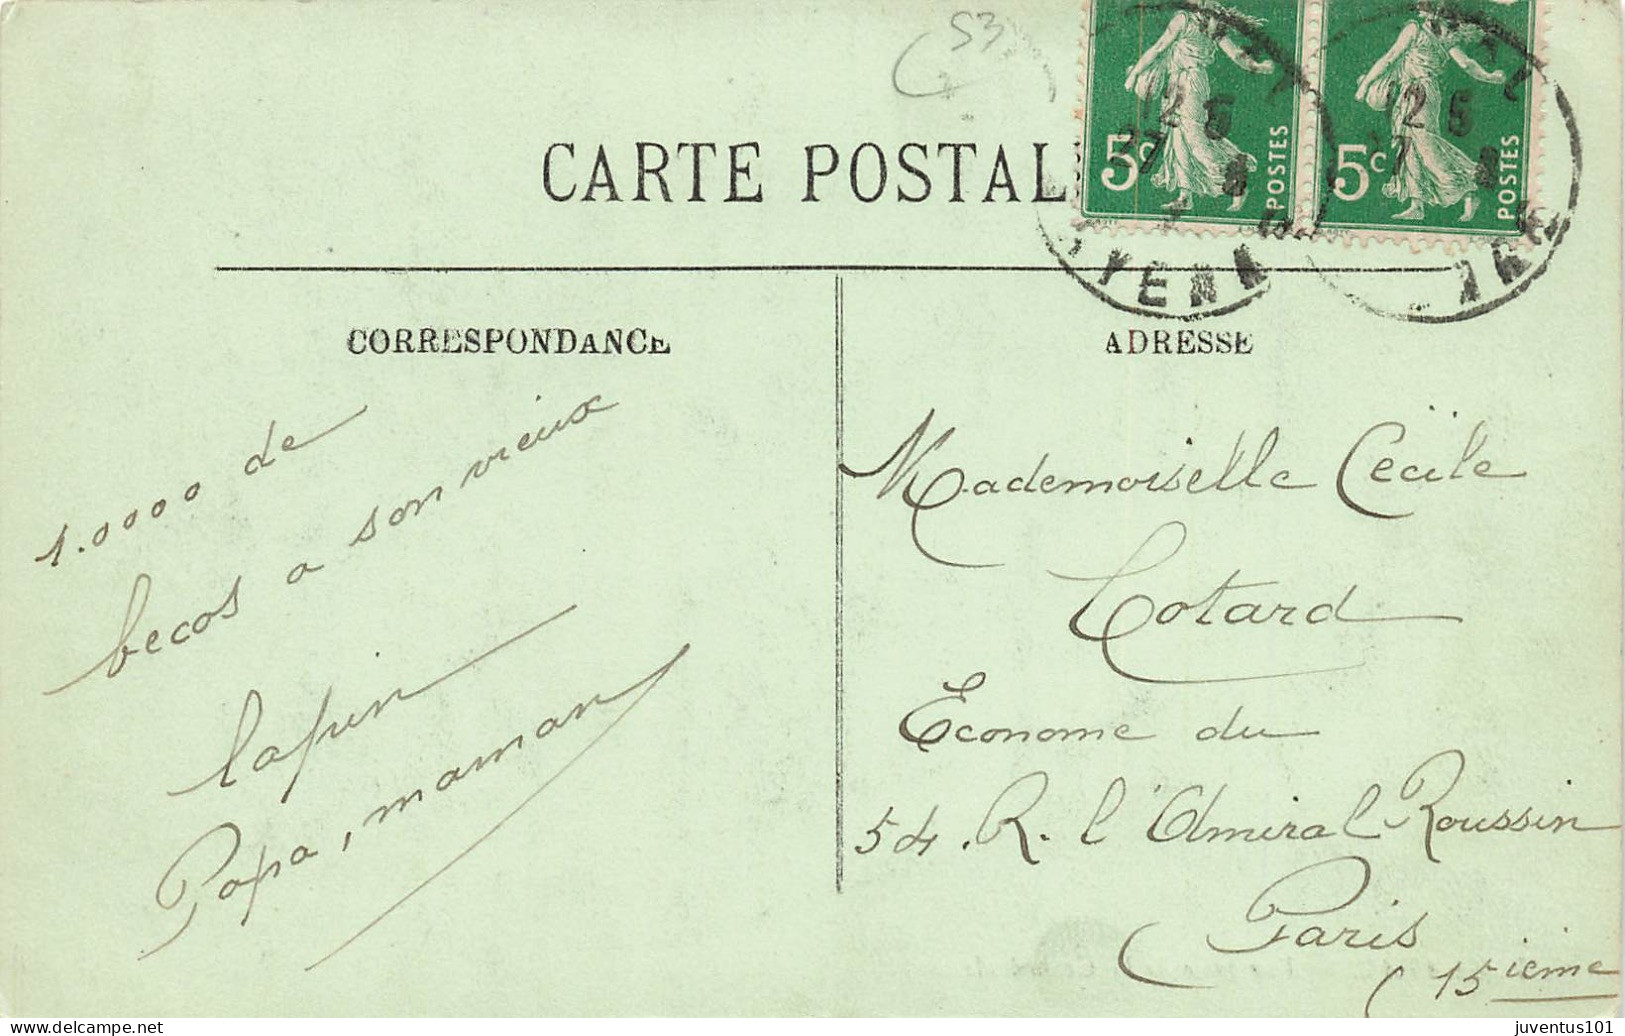 53
CARTE POSTAL
5c POSTES
5c POSTES
CORRESPONDANCE
ADRESSE
1.0000 de
becos a son vieux
lapin
Papa, maman
Mademoiselle Cécile
Cotard
Econome du
54. R. l'Amiral Roussin
Paris
(15ieme
juventus101